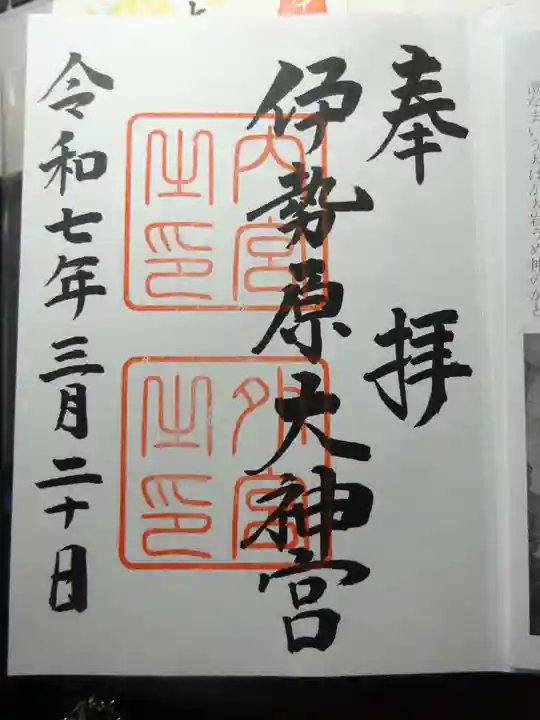 奉拝
伊勢原大神宮
内宮
之印
外宮
之印
令和七年三月二十日